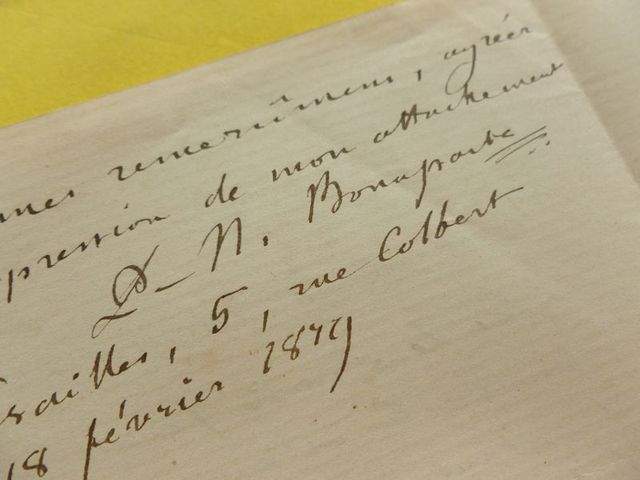 mes remerciments, agréer
pression de mon attachement
P-N. Bonaparte
sailles, 5, rue Colbert
18 février 1879